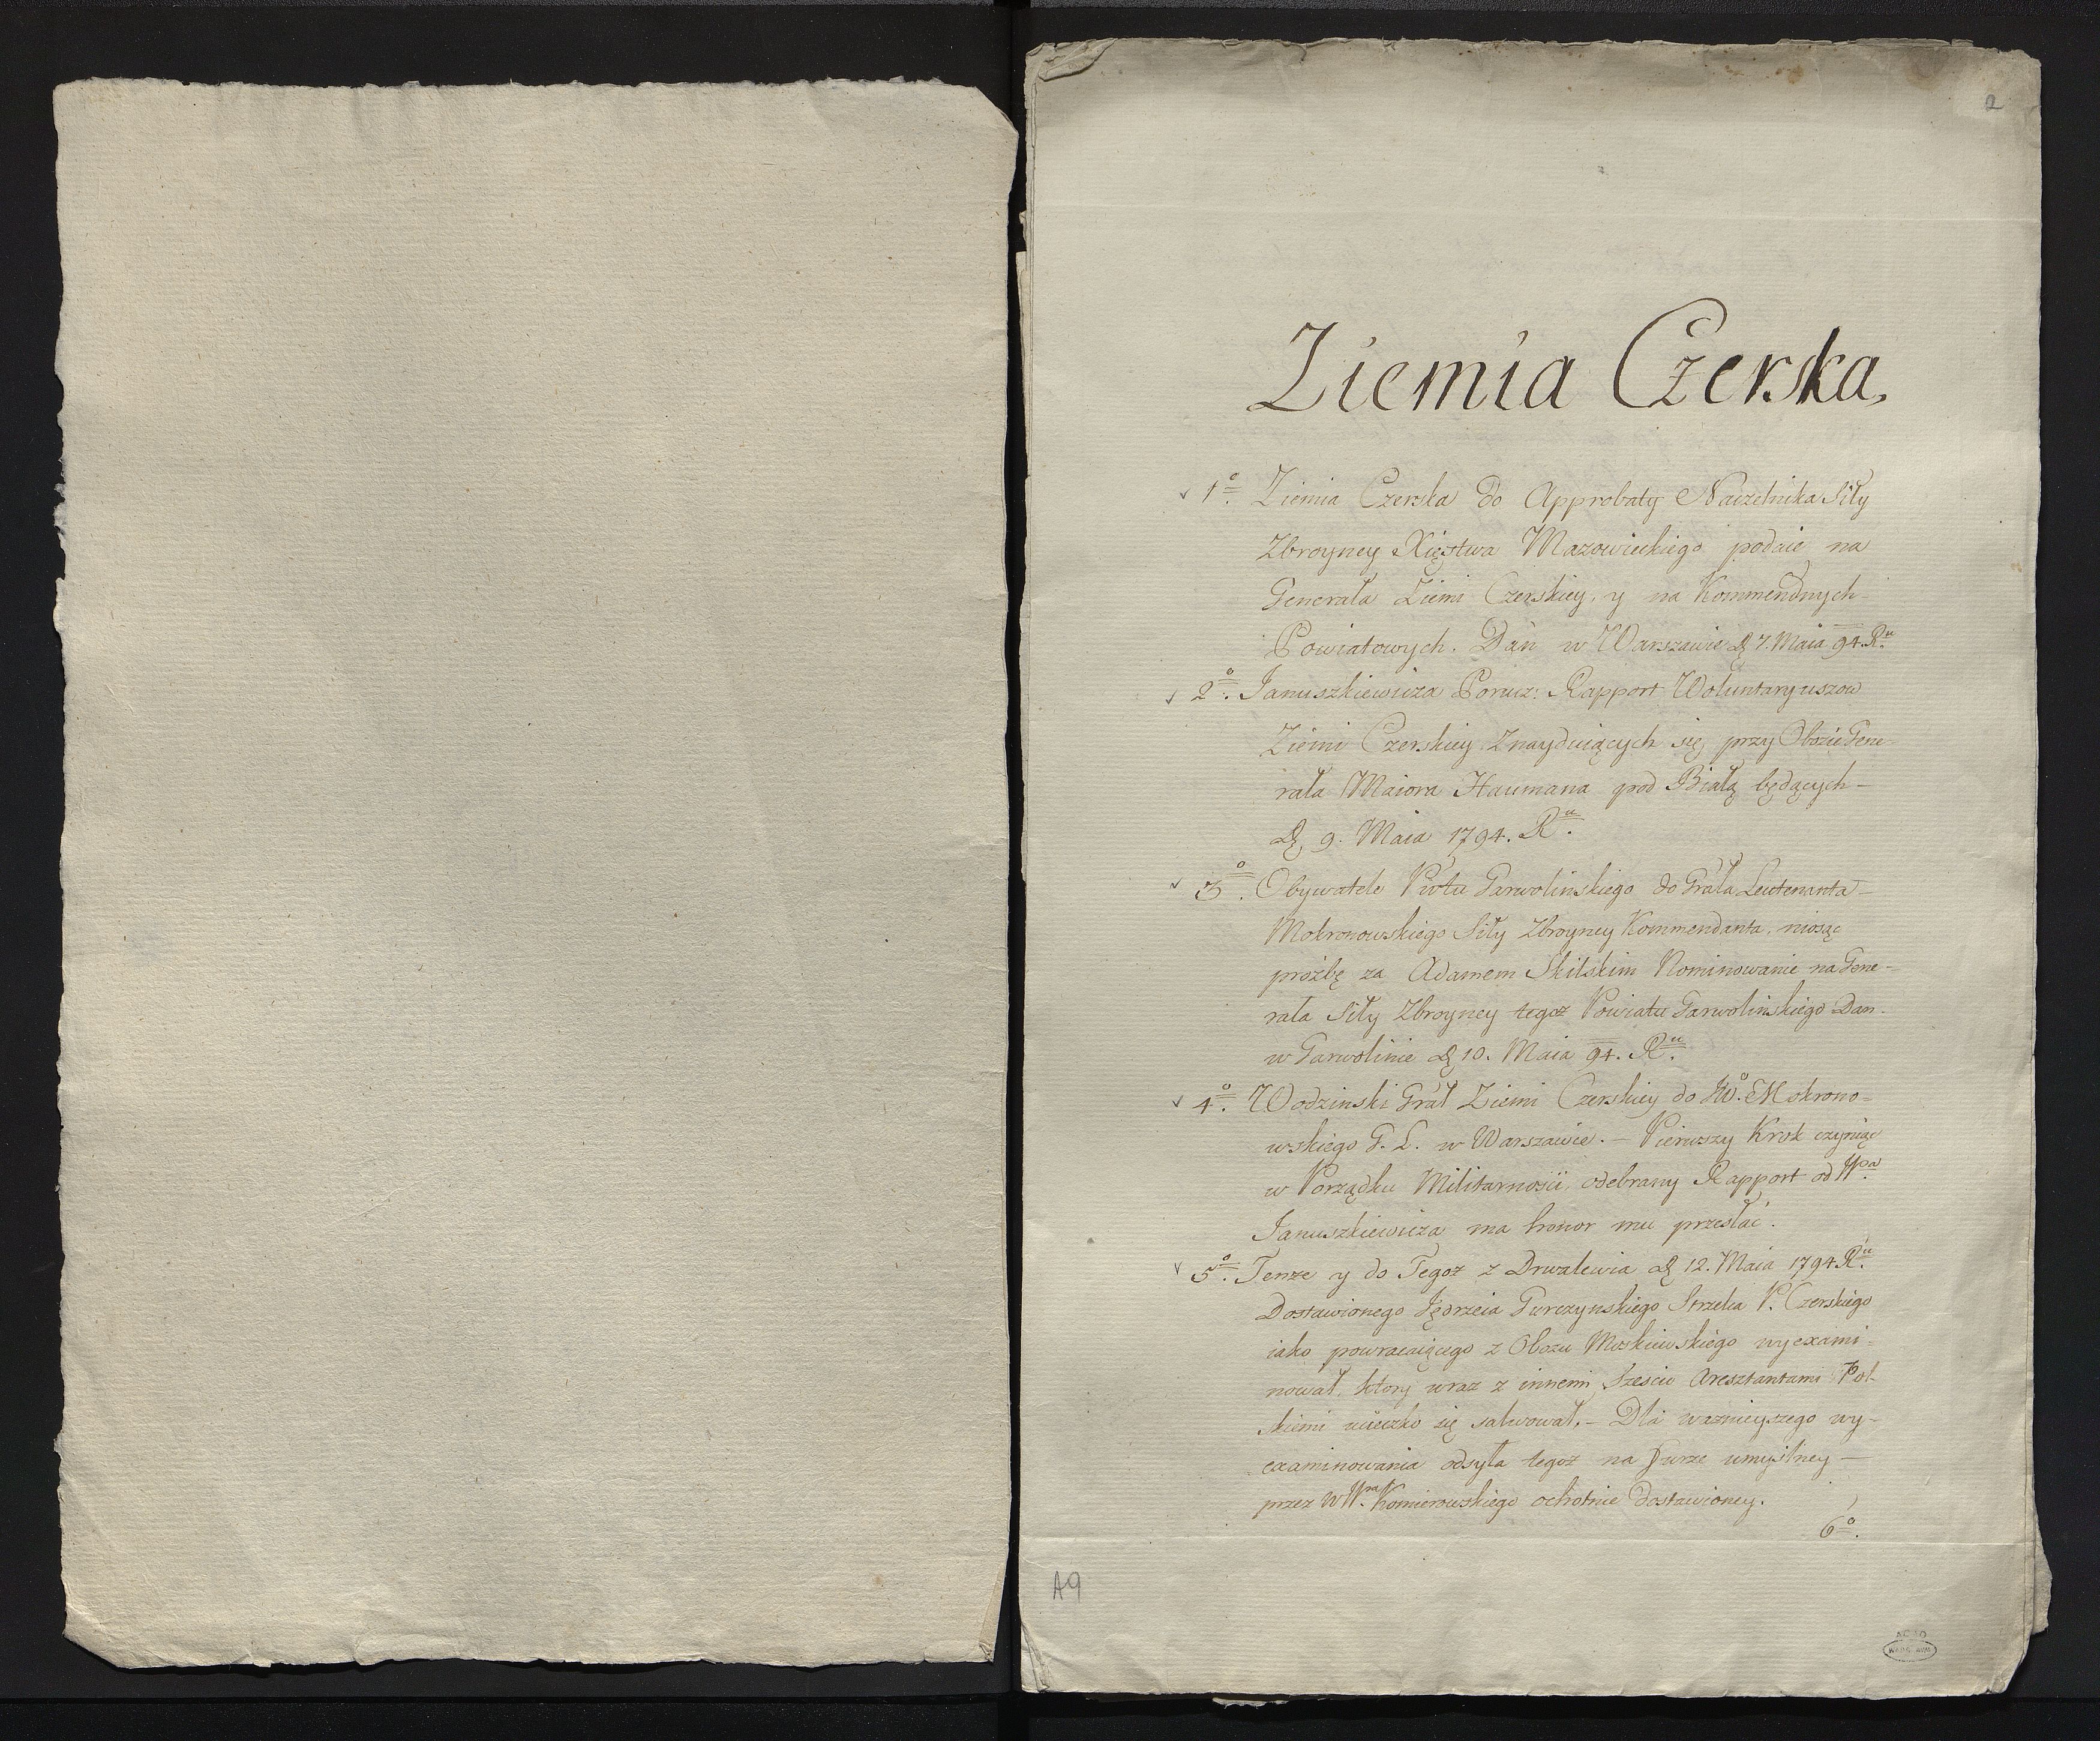 2
Ziemia Czerska,
1o. Ziemia Czerska do Approbaty Naczelnika Siły
Zbroyney Xięstwa Mazowieckiego podaie na
Generała Ziemi Czerskiey, y na Kommendnych
Powiatowych. Dan w Warszawie D. 7. Maia 94. Ru.
2o. Januszkiewicza Porucz: Rapport Woluntaryuszow
Ziemi Czerskiey Znayduiących się przy Obozie Gene
rała Maiora Haumana pod Białą będących –
D. 9. Maia 1794. Ru.
3o. Obywatele Pwtu Garwolinskiego do Grała Leutenanta –
Mokronowskiego Siły Zbroyney Kommendanta, niosąc
prożbę za Adamem Skilskim Nominowanie na Gene-
rała Siły Zbroyney tegoż Powiatu Garwolinskiego Dan.
w Garwolinie D. 10. Maia 94. Ru.
4o. Wodzinski Grał Ziemi Czerskiey do Mokrono-
wskiego G. L. w Warszawie. – Pierwszy Krok czyniąc
w Porządku Militarności, odebrany Rapport od Wpa
Januszkiewicza ma honor mu przesłać.
5o. Tenze y do Tegoż z Drwalewia D. 12. Maia 1794 Ru.
Dostawionego Jędrzeia Gurczynskiego Strzelca P. Czerskiego
iako powracaiącego z Obozu Moskiewskiego wyexami-
nował, ktory wraz z innemi Sześciu Aresztantami Pol-
skiemi ucieczko się salwował. – Dla wazmieyszego wy-
examinowania odsyła tegoż na Furze umyślney –
przez WWpa Komierowskiego ochotnie dostawioney.
6o.
A9
AGAD